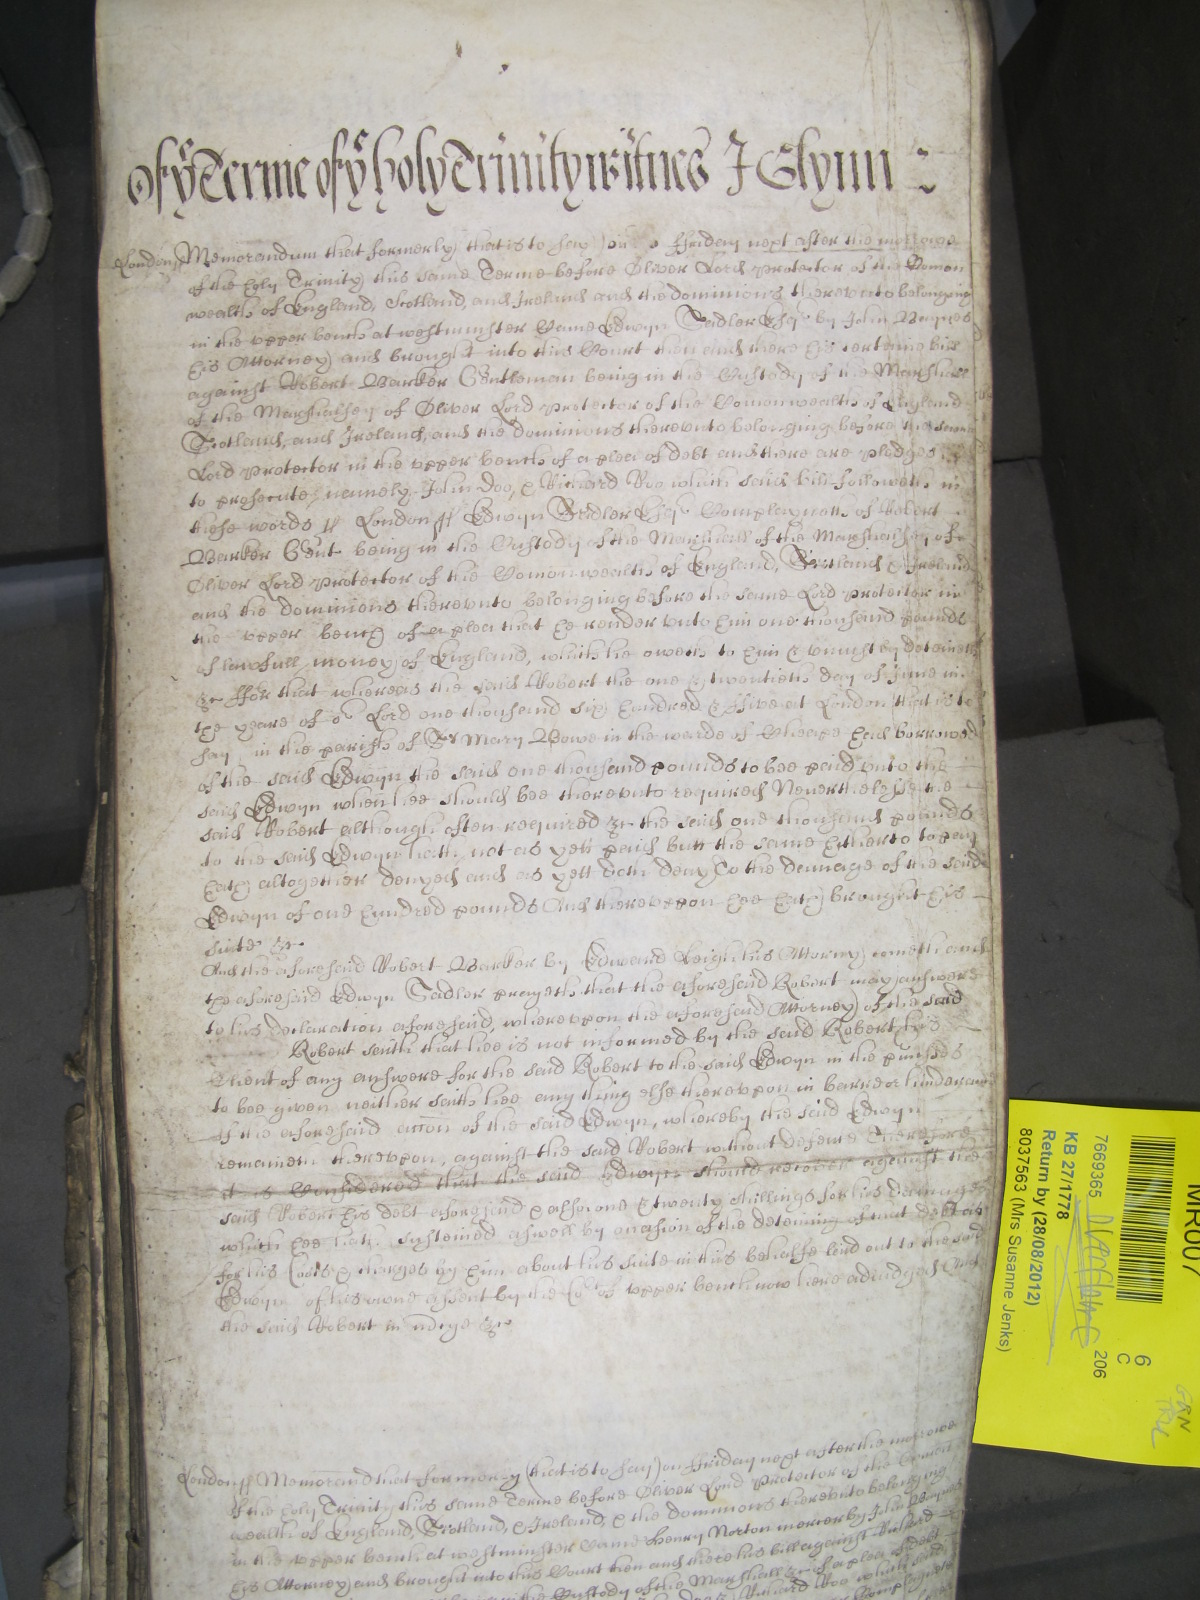 Of ye Terme of ye holy Trinity witnes J Glynn
London ss Memorandum that formerly that is to say on ffriday next after the morrowe
of the holy Trinity this same Terme before Oliver Lord protector of the Comon
wealth of England, Scotland, and Ireland and the dominions therevnto belonging
in the vpper bench at westminster Came Edwyn Sadler Esqr by John Baynes
his Attorney and brought into this Court then and there his certaine bill
against Robert Barker Gentleman being in the Custody of the Marshall
of the Marshalsey of Oliver Lord protector of the Comonwealth of England
Scotland, and Ireland, and the dominions therevnto belonging before the same
Lord protector in the vpper bench of a plea of debt and there are pledges
to prosecute namely John Doo, & Richard Roo which said bill followeth in
these words ss London ss Edwyn Sadler Esqr Complayneth of Robert
Barker Gent being in the Custody of the Marshall of the Marshalsey of
Oliver Lord protector of the Comonwealth of England, Scotland & Ireland
and the dominions therevnto belonging before the same Lord protector in
the vpper bench of a plea that he render vnto him one thousand pounds
of lawfull money of England, which he oweth to him & vniustly deteineth
&c ffor that whereas the said Robert the one & twentieth day of June in
the yeare of or Lord one thousand six hundred & ffive at London that is to
say in the parish of St Mary Bowe in the warde of Cheape had borrowed
of the said Edwyn the said one thousand pounds to bee paid vnto the
said Edwyn when hee should bee therevnto required Neverthelesse the
said Robert although often required &c the said one thousand pounds
to the said Edwyn hath not as yett paid but the same hitherto to pay
hath altogether denyed and as yett doth deny To the dammage of the said
Edwyn of one hundred pounds And therevpon hee hath brought his
suite &c
And the aforesaid Robert Barker by Edward Leigh his Attorny cometh and
the aforesaid Edwyn Sadler prayeth that the aforesaid Robert may answere
to his declaration aforesaid, wherevpon the aforesaid Attorney of the said
Robert saith that hee is not informed by the said Robert his
Client of any answere for the said Robert to the said Edwyn in the pmisses
to bee given neither saith hee any thing else therevpon in barre or hinderance
of the aforesaid accon of the said Edwyn, whereby the said Edwyn
remaineth therevpon, against the said Robert without defence Therefore
it is Considered that the said Edwyn should recover against the
said Robert his debt aforesaid & alsoe one & twenty shillings for his dammages
which hee hath susteined aswell by occasion of the deteining of that debt as
for his Costs & charges by him about his suite in this behalfe laid out to the said
Edwyn of his owne assent by the Cot of vpper bench now here adiudged And
the said Robert in mercye &c
London ss Memorand that formerly (that is to say) on ffriday next after the morrowe
of the holy Trinity this same Terme before Oliver Lord Protector of the Comon
wealth of England, Scotland, & Ireland, & the dominions therevnto belonging
in the vpper bench at westminster Came Henry Norton mercer by John Baynes
his Attorney and brought into this Court then and there his bill against Richard
in the Custody of the Marshall &c of a plea of debt
Richard Roo which said
Complayneth
MR007
6
C
7669365
206
KB 27/1778
Return by (28/08/2012)
8037563 (Mrs Susanne Jenks)